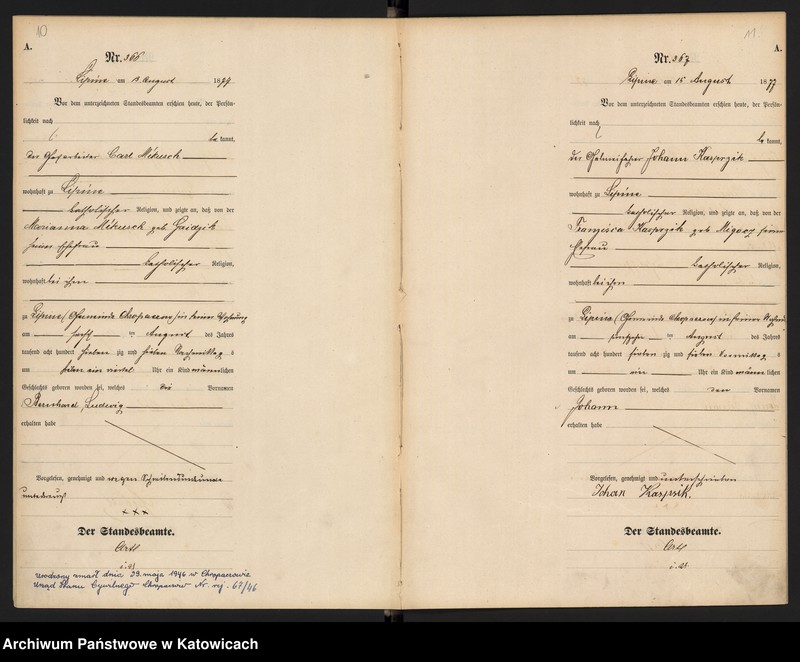 10
A.
Nr. 366
Lipine am 13 August 1877
Vor dem unterzeichneten Standesbeamten erschien heute, der Persön-
lichkeit nach
be kannt,
der Carl Mekusch
wohnhaft zu Lipine
katholischer Religion, und zeigte an, daß von der
Marianna Mekusch geb. Gaidzik
seine Ehefrau
katholischer Religion,
wohnhaft bei ihm
zu Lipine (Gemeinde Chropaczow) in seiner Wohnung
am im August des Jahres
tausend acht hundert sieben zig und sieben Nachmittag s
um ein viertel Uhr ein Kind männlichen
Geschlechts geboren worden sei, welches die Vornamen
Bernhard Ludwig
erhalten habe
Vorgelesen, genehmigt und wegen
xxx
Der Standesbeamte.
Urodzony zmarł dnia 29. maja 1946 w Chropaczowie
Urząd Stanu Cywilnego Chropaczów Nr. rej. 67/46
11.
A.
Nr. 367
Lipine am 15 August 1877
Vor dem unterzeichneten Standesbeamten erschien heute, der Persön-
lichkeit nach
be kannt,
der Johann Kasprzik
wohnhaft zu Lipine
katholischer Religion, und zeigte an, daß von der
Franzisca Kasprzik geb. Migacz seine
Ehefrau
katholischer Religion,
wohnhaft bei ihm
zu Lipine (Gemeinde Chropaczow) in seiner Wohnung
am im August des Jahres
tausend acht hundert sieben zig und sieben Vormittag s
um ein Uhr ein Kind männlichen
Geschlechts geboren worden sei, welches den Vornamen
Johann
erhalten habe
Vorgelesen, genehmigt und unterschrieben
Johan Kasprzik.
Der Standesbeamte.
Archiwum Państwowe w Katowicach